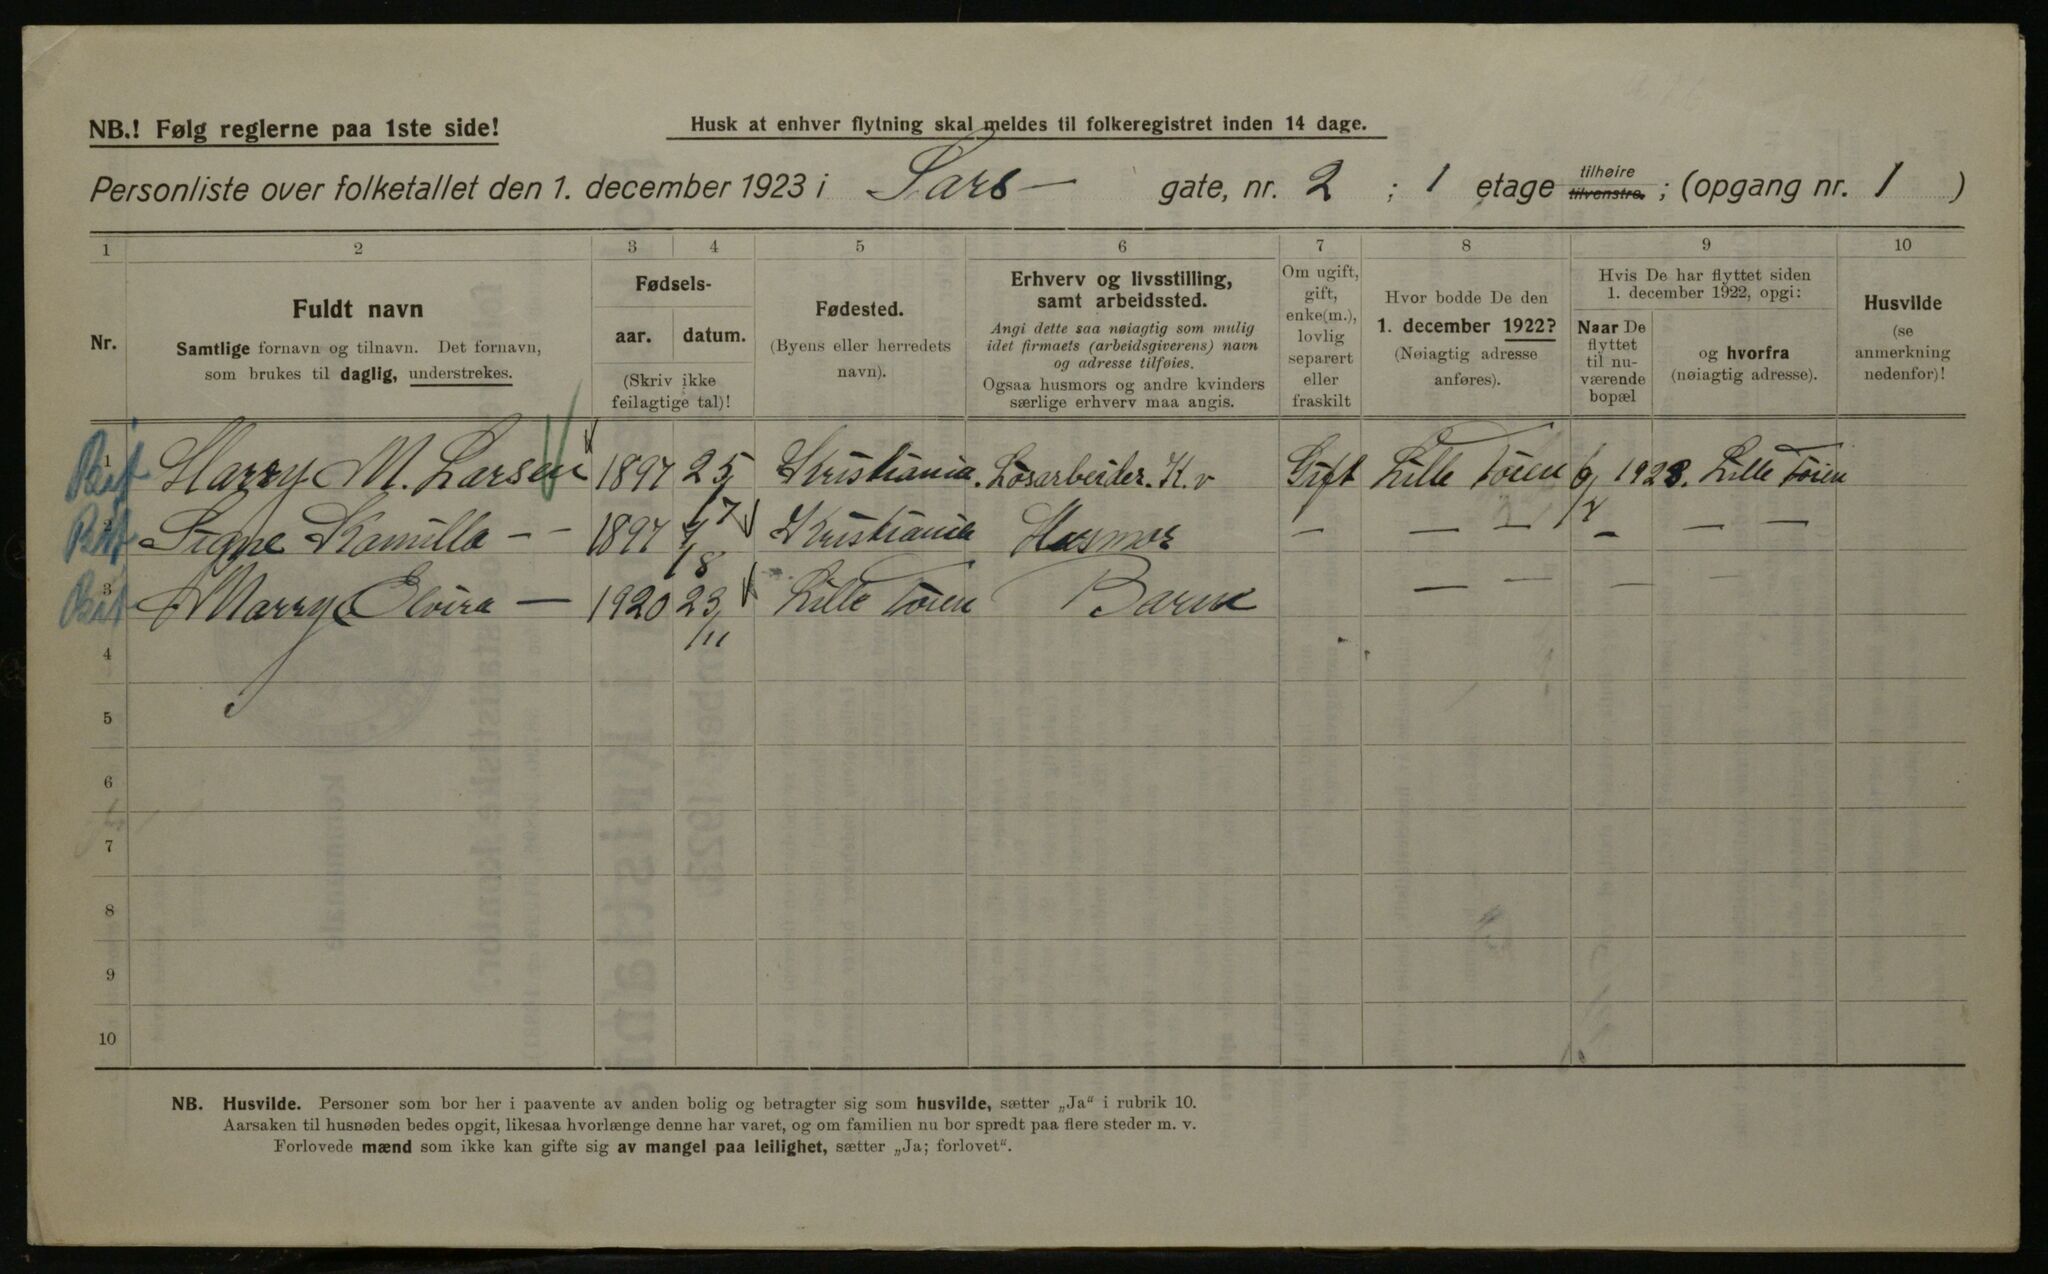 NB.! Følg reglerne paa 1ste side!
Husk at enhver flytning skal meldes til folkeregistret inden 14 dage.
Personliste over folketallet den 1. december 1923 i Sars — gate, nr. 2 ; 1 etage tilhøire tilvenstre. ; (opgang nr. 1 )
1 2 3 4 5 6 7 8 9 10
Nr.
Fuldt navn
Samtlige fornavn og tilnavn. Det fornavn,
som brukes til daglig, understrekes.
Fødsels-
aar. datum.
(Skriv ikke
feilagtige tal)!
Fødested.
(Byens eller herredets
navn).
Erhverv og livsstilling,
samt arbeidssted.
Angi dette saa nøiagtig som mulig
idet firmaets (arbeidsgiverens) navn
og adresse tilføies.
Ogsaa husmors og andre kvinders
særlige erhverv maa angis.
Om ugift,
gift,
enke(m.),
lovlig
separert
eller
fraskilt
Hvor bodde De den
1. december 1922?
(Nøiagtig adresse
anføres).
Hvis De har flyttet siden
1. december 1922, opgi:
Naar De
flyttet
til nu-
værende
bopæl
og hvorfra
(nøiagtig adresse).
Husvilde
(se
anmerkning
nedenfor)!
1 Harry M. Larsen 1897 25/7 Kristiania. Løsarbeider. K. v Gift Lille Tøien 1923. Lille Tøien
2 Signe Kamilla - - 1897 7/8 Kristiania Husmor — — — — — —
3 Marry Elvira — 1920 23/11 Lille Tøien Barn — —
4
5
6
7
8
9
10
NB. Husvilde. Personer som bor her i paavente av anden bolig og betragter sig som husvilde, sætter „Ja“ i rubrik 10.
Aarsaken til husnøden bedes opgit, likesaa hvorlænge denne har varet, og om familien nu bor spredt paa flere steder m. v.
Forlovede mænd som ikke kan gifte sig av mangel paa leilighet, sætter „Ja; forlovet“.